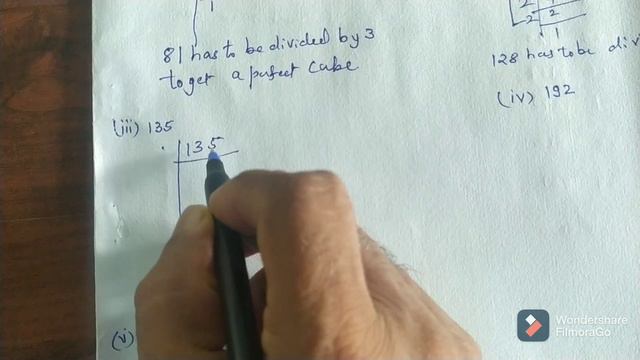 1
81 has to be divided by 3
to get a perfect cube
(iii) 135
135
(v)
2
2 2
1
128 has to be divi
(iv) 192
Wondershare
FilmoraGo